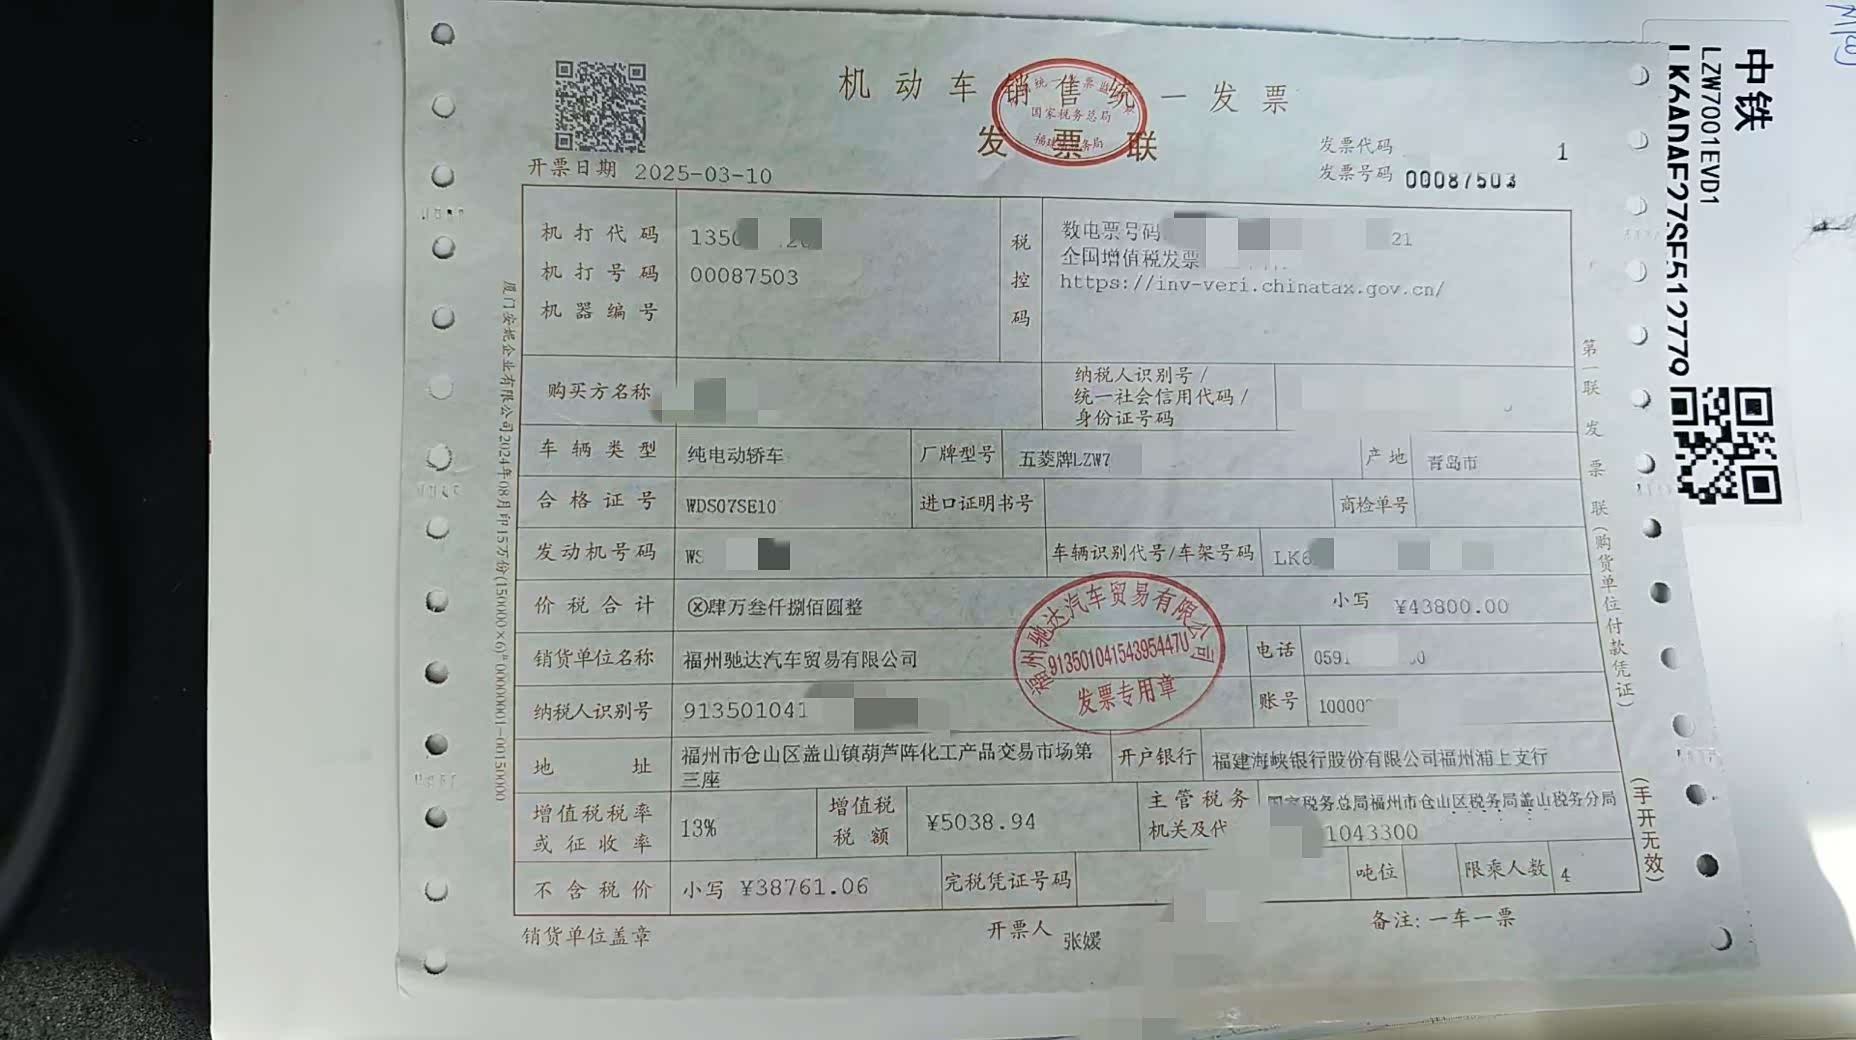 机动车销售统一发票
发票联
国家税务总局
开票日期 2025-03-10
发票代码
发票号码 00087503
1
机打代码 1350
机打号码 00087503
机器编号
税控码
数电票号码 21
全国增值税发票
https://inv-veri.chinatax.gov.cn/
购买方名称
纳税人识别号/
统一社会信用代码/
身份证号码
车辆类型 纯电动轿车 厂牌型号 五菱牌LZW7 产地 青岛市
合格证号 WDS07SE10 进口证明书号 商检单号
发动机号码 WS 车辆识别代号/车架号码 LK6
价税合计 ⓧ肆万叁仟捌佰圆整 小写 ¥43800.00
销货单位名称 福州驰达汽车贸易有限公司 电话 059
纳税人识别号 913501041 账号 10000
福州驰达汽车贸易有限公司
91350104154395447U
发票专用章
地址 福州市仓山区盖山镇葫芦阵化工产品交易市场第
三座
开户银行 福建海峡银行股份有限公司福州浦上支行
增值税税率
或征收率
13%
增值税
税额
¥5038.94
主管税务
机关及代
国家税务总局福州市仓山区税务局盖山税务分局
1043300
不含税价 小写 ¥38761.06 完税凭证号码 吨位 限乘人数 4
销货单位盖章 开票人 张媛 备注:一车一票
第一联 发票联(购货单位付款凭证)
(手开无效)
厦门安妮企业有限公司2024年08月印15万份(150000×6)#00000001-00150000
中铁
LZW7001EVD1
LK6ADAE27SE512779